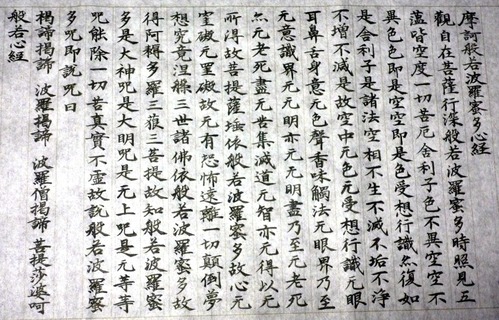 摩訶般若波羅蜜多心經
觀自在菩薩行深般若波羅蜜多時照見五
蘊皆空度一切苦厄舍利子色不異空空不
異色色即是空空即是色受想行識亦復如
是舍利子是諸法空相不生不滅不垢不淨
不增不減是故空中无色无受想行識无眼
耳鼻舌身意无色聲香味觸法无眼界乃至
无意識界无无明亦无无明盡乃至无老死
亦无老死盡无苦集滅道无智亦无得以无
所得故菩提薩埵依般若波羅蜜多故心无
罣礙无罣礙故无有恐怖遠離一切顛倒夢
想究竟涅槃三世諸佛依般若波羅蜜多故
得阿耨多羅三藐三菩提故知般若波羅蜜
多是大神咒是大明咒是无上咒是无等等
咒能除一切苦真實不虛故說般若波羅蜜
多咒即說咒曰
揭諦揭諦 波羅揭諦 波羅僧揭諦 菩提莎婆呵
般若心經